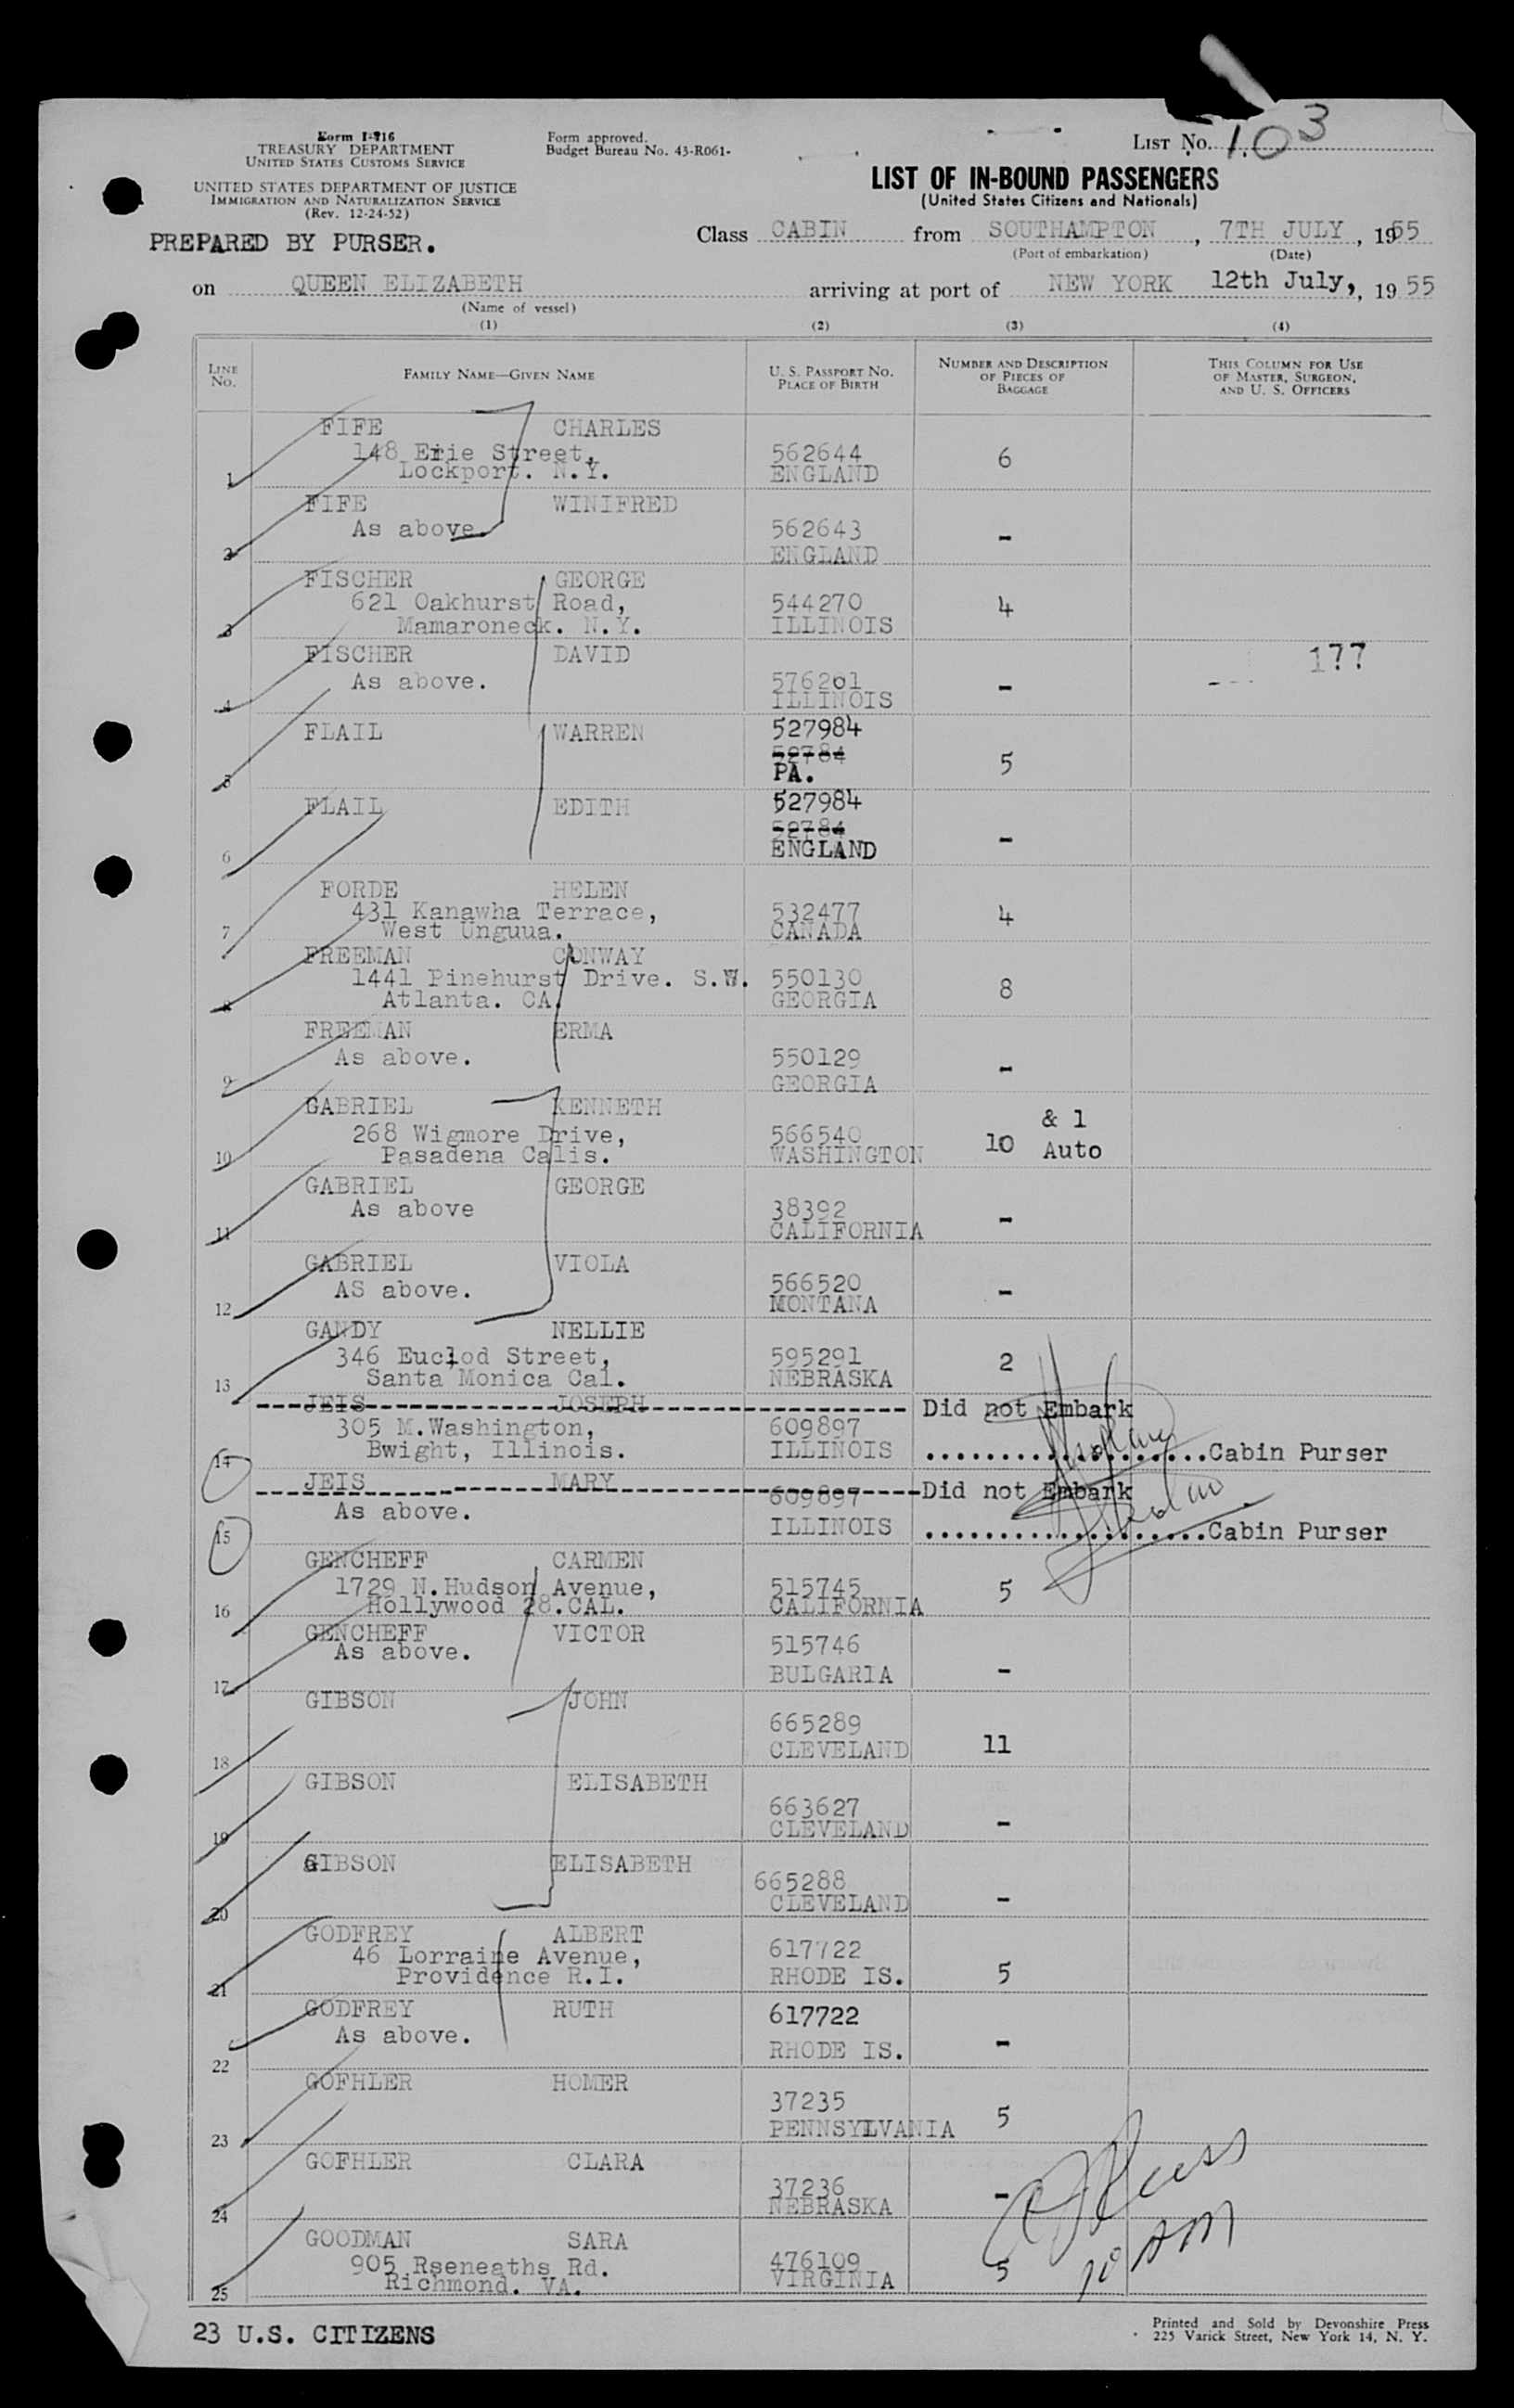 Form I-416
TREASURY DEPARTMENT
UNITED STATES CUSTOMS SERVICE
UNITED STATES DEPARTMENT OF JUSTICE
IMMIGRATION AND NATURALIZATION SERVICE
(Rev. 12-24-52)
PREPARED BY PURSER.
Form approved.
Budget Bureau No. 43-R061-
LIST No. 103
LIST OF IN-BOUND PASSENGERS
(United States Citizens and Nationals)
Class CABIN from SOUTHAMPTON, 7TH JULY, 1955
(Port of embarkation) (Date)
on QUEEN ELIZABETH arriving at port of NEW YORK 12th July,, 1955
(Name of vessel)
(1) (2) (3) (4)
LINE No. FAMILY NAME—GIVEN NAME U. S. PASSPORT No. PLACE OF BIRTH NUMBER AND DESCRIPTION OF PIECES OF BAGGAGE THIS COLUMN FOR USE OF MASTER, SURGEON, AND U. S. OFFICERS
FIFE CHARLES
148 Erie Street, 562644 6
1 Lockport. N.Y. ENGLAND
FIFE WINIFRED
As above. 562643 -
2 ENGLAND
FISCHER GEORGE
621 Oakhurst Road, 544270 4
3 Mamaroneck. N.Y. ILLINOIS
FISCHER DAVID 177
As above. 576201 -
4 ILLINOIS
FLAIL WARREN 527984
52784 5
5 PA.
FLAIL EDITH 527984
52784 -
6 ENGLAND
FORDE HELEN
431 Kanawha Terrace, 532477 4
7 West Unguua. CANADA
FREEMAN CONWAY
1441 Pinehurst Drive. S.W. 550130 8
8 Atlanta. CA. GEORGIA
FREEMAN ERMA
As above. 550129 -
9 GEORGIA
GABRIEL KENNETH & 1
268 Wigmore Drive, 566540 10 Auto
10 Pasadena Calis. WASHINGTON
GABRIEL GEORGE
As above 38392 -
11 CALIFORNIA
GABRIEL VIOLA
AS above. 566520 -
12 MONTANA
GANDY NELLIE
346 Euclod Street, 595291 2
13 Santa Monica Cal. NEBRASKA
JEIS JOSEPH Did not Embark
305 M.Washington, 609897
14 Bwight, Illinois. ILLINOIS ....................Cabin Purser
JEIS MARY 609897 Did not Embark
As above.
15 ILLINOIS ....................Cabin Purser
GENCHEFF CARMEN
1729 N.Hudson Avenue, 515745 5
16 Hollywood 28.CAL. CALIFORNIA
GENCHEFF VICTOR 515746
As above.
17 BULGARIA -
GIBSON JOHN
665289
18 CLEVELAND 11
GIBSON ELISABETH
663627
19 CLEVELAND -
GIBSON ELISABETH
665288
20 CLEVELAND -
GODFREY ALBERT
46 Lorraine Avenue, 617722
21 Providence R.I. RHODE IS. 5
GODFREY RUTH 617722
As above.
22 RHODE IS. -
GOFHLER HOMER
37235
23 PENNSYLVANIA 5
GOFHLER CLARA
37236 -
24 NEBRASKA
GOODMAN SARA
905 Rseneaths Rd. 476109 5
25 Richmond. VA. VIRGINIA
10 AM
23 U.S. CITIZENS
Printed and Sold by Devonshire Press
225 Varick Street, New York 14, N. Y.